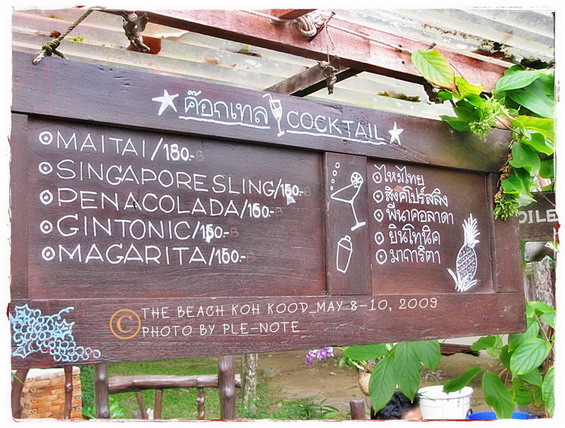 ค๊อกเทล COCKTAIL
MAITAI/180.-B
SINGAPORE SLING/150.-B
PENACOLADA/150.-B
GINTONIC/150.-B
MAGARITA/150.-B
ไหมไทย
สิงคโปร์สลิง
พีนาคอลาดา
ยินโทนิค
มาการิตา
THE BEACH KOH KOOD_MAY 8-10, 2009
© PHOTO BY PLE-NOTE